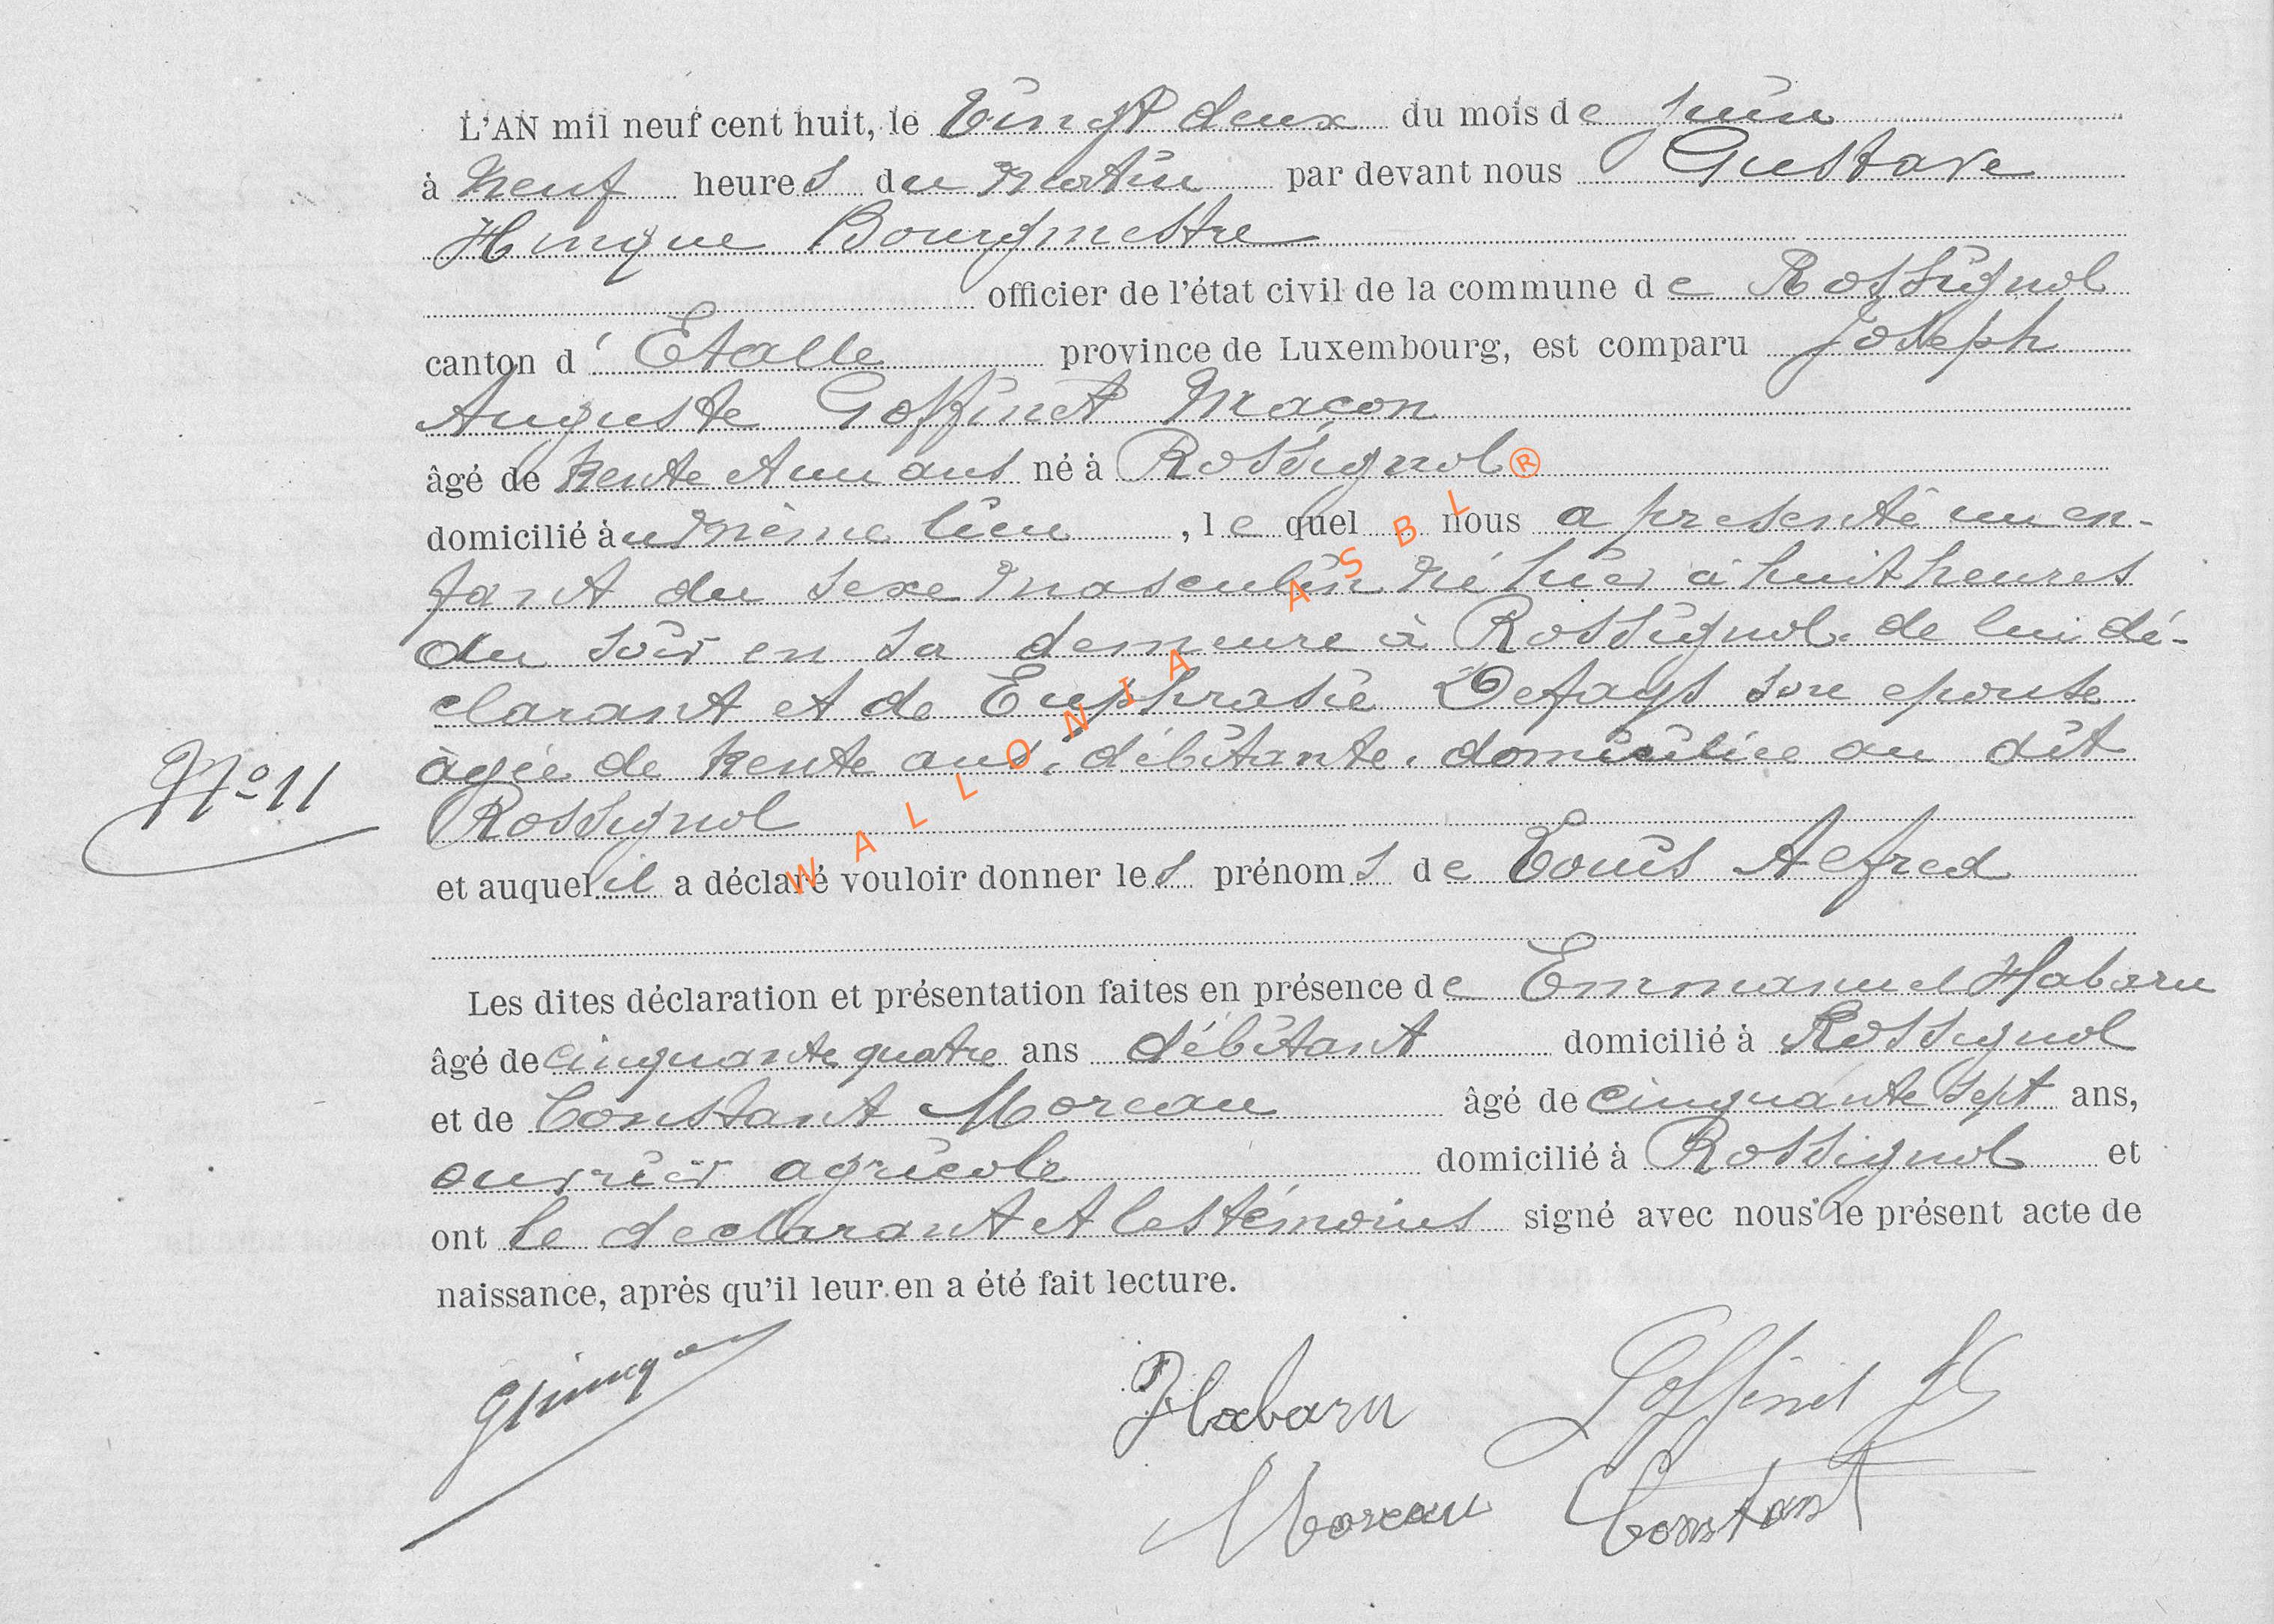 L'AN mil neuf cent huit, le Vingt deux du mois de juin
à neuf heures du matin par devant nous Gustave
Hinque Bourgmestre
officier de l'état civil de la commune de Rossignol
canton d'Etalle province de Luxembourg, est comparu Joseph
Auguste Goffinet Maçon
âgé de trente et un ans né à Rossignol
domicilié au même lieu, lequel nous a presenté un en-
fant du sexe masculin né hier à huit heures
du soir en sa demeure à Rossignol. de lui dé-
clarant et de Euphrasie Defays son epouse
àgée de trente ans, débitante, domiciliée au dit
Nº 11
Rossignol
et auquel il a déclaré vouloir donner les prénoms de Louis Alfred
Les dites déclaration et présentation faites en présence de Emmanuel Habaru
âgé de cinquante quatre ans débitant domicilié à Rossignol
et de Constant Moreau âgé de cinquante sept ans,
ouvrier agricole domicilié à Rossignol et
ont le declarant et les témoins signé avec nous le présent acte de
naissance, après qu'il leur en a été fait lecture.
GHinque Habaru Goffinet
Moreau Constant
WALLONIA ASBL ®